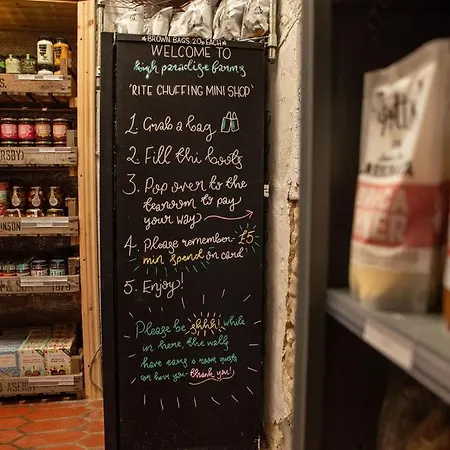 ★ BROWN BAGS 20p EACH ★
WELCOME TO
high paradise farms
'RITE CHUFFING MINI SHOP'
1. Grab a bag
2. Fill thi boots
3. Pop over to the
tearoom to pay
your way
4. Please remember £5
min spend on card
5. Enjoy!
Please be shhh! while
in here, the walls
have ears & room guests
can hear you - thank you!